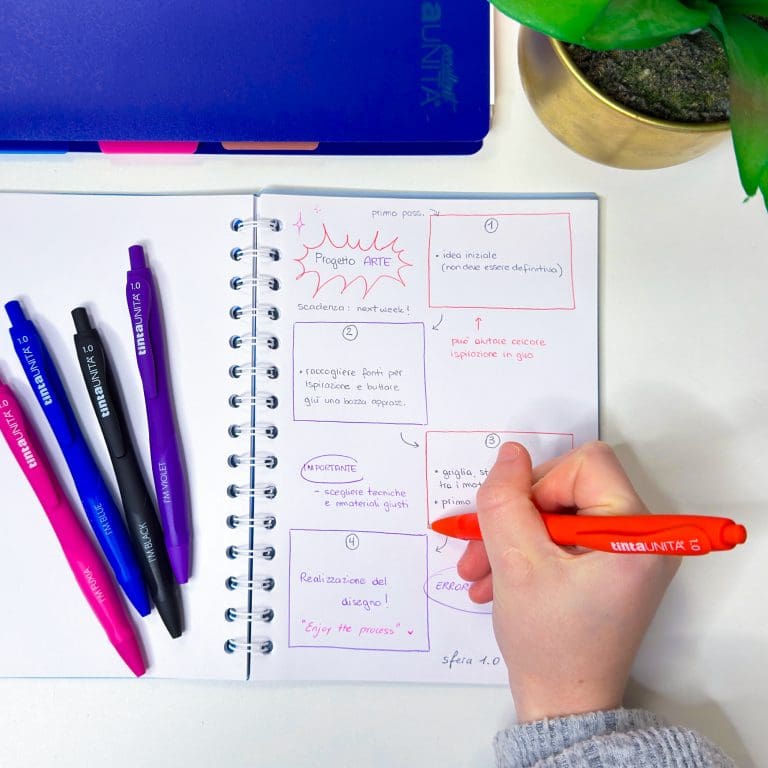 UNITÀ
primo pass.
Progetto ARTE
scadenza: next week!
1
• idea iniziale
(non deve essere definitiva)
può aiutare cercare
ispirazione in giro
2
• raccogliere fonti per
ispirazione e buttare
giù una bozza appross.
3
• griglia,
tra i
• primo
IMPORTANTE
- scegliere tecniche
e materiali giusti
4
Realizzazione del
disegno!
"Enjoy the process"
sfera 1.0
1.0 tintaUNITÀ I'M FUXIA
1.0 tintaUNITÀ I'M BLUE
1.0 tintaUNITÀ I'M BLACK
1.0 tintaUNITÀ I'M VIOLET
tintaUNITÀ 1.0